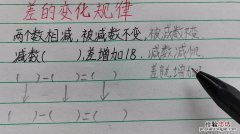 差的变化规律
两个数相减,被减数不变,被减数不变
减数( ),差增加18. 减数减少
差就增加
( )-( )=( )
( )-( )=( )